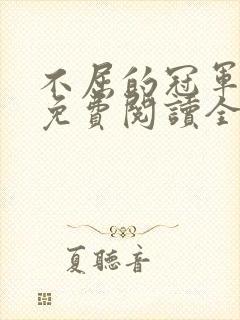 不屈的冠軍
免費閱讀全
夏聽音